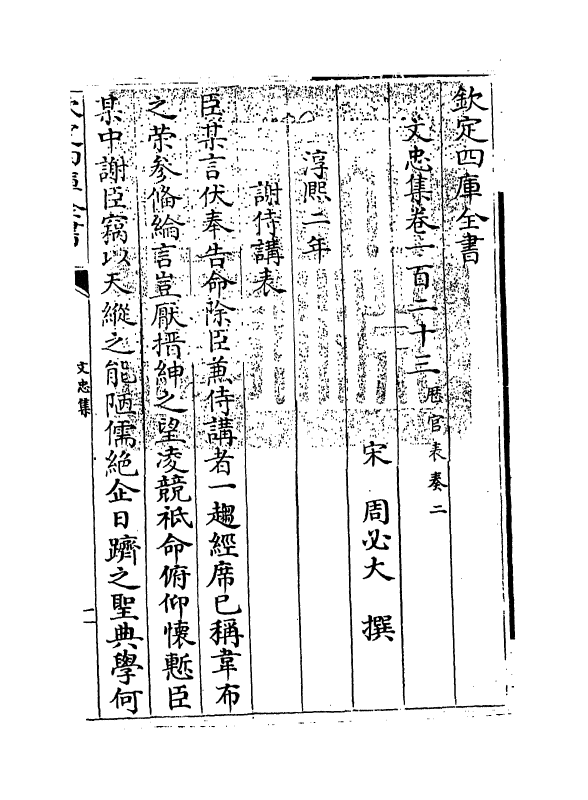 欽定四庫全書
文忠集卷一百二十三 歴官表奏二
宋 周必大 撰
淳熙二年
謝侍講表
臣某言伏奉告命除臣兼侍講者一趨經席已稱韋布
之荣參備綸言豈厭搢紳之望凌競祇命俯仰懷慙臣
某中謝臣竊以天縱之能陋儒絶企日躋之聖典學何
欽定四庫全書
文忠集
一